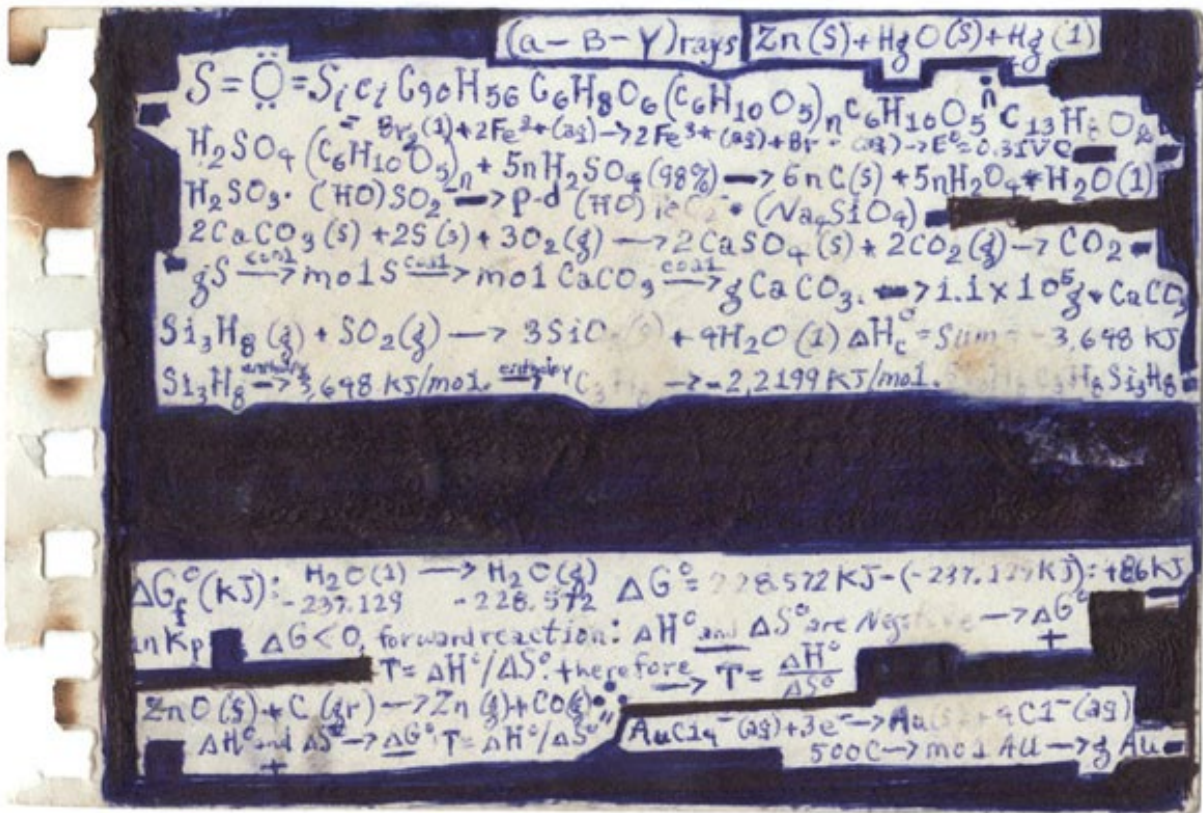 (a-B-Y)rays Zn(S)+HgO(S)+Hg(1)
S=Ö=SiCi C90H56 C6H8O6(C6H10O5)nC6H10O5 n C13H8O2
= Br2(1)+2Fe2+(aq)→2Fe3+(aq)+Br-(aq)→E°=0.31VO
H2SO4(C6H10O5)n+5nH2SO4(98%)→6nC(s)+5nH2O4+H2O(1)
H2SO3·(HO)SO2-→p-d(HO) (Na4SiO4)
2CaCO3(s)+2S(s)+3O2(g)→2CaSO4(s)+2CO2(g)→CO2
gS→mo1S→mo1CaCO3→gCaCO3.→1.1x10⁵g+CaCO3
Si3H8(g)+SO2(g)→3SiO (s)+4H2O(1) ΔHc°=Sum=-3,648 KJ
Si3H8→3,648 KJ/mo1.→C3H8→-2,2199 KJ/mo1. C3H8 Si3H8
ΔGf°(KJ): H2O(1)→H2O(g) ΔG°=228.572KJ-(-237.129KJ):+86KJ
-237.129 -228.572
lnKp ΔG<0, forward reaction: ΔH° and ΔS° are Negative→ΔG°
+
T=ΔH°/ΔS°. therefore→T=ΔH°/ΔS°
ZnO(s)+C(gr)→Zn(g)+CO(g)
ΔH° and ΔS°→ΔG°·T=ΔH°/ΔS°"
+
AuCl4-(aq)+3e-→Au(s)+4C1-(aq)
500C→mo1 AU→g Au